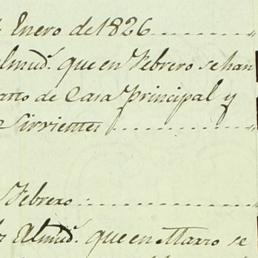 Enero de 1826
Almud.s que en Febrero se han
Gasto de Casa Principal y
Sirvientes
Febrero
Almud.s que en Marzo se